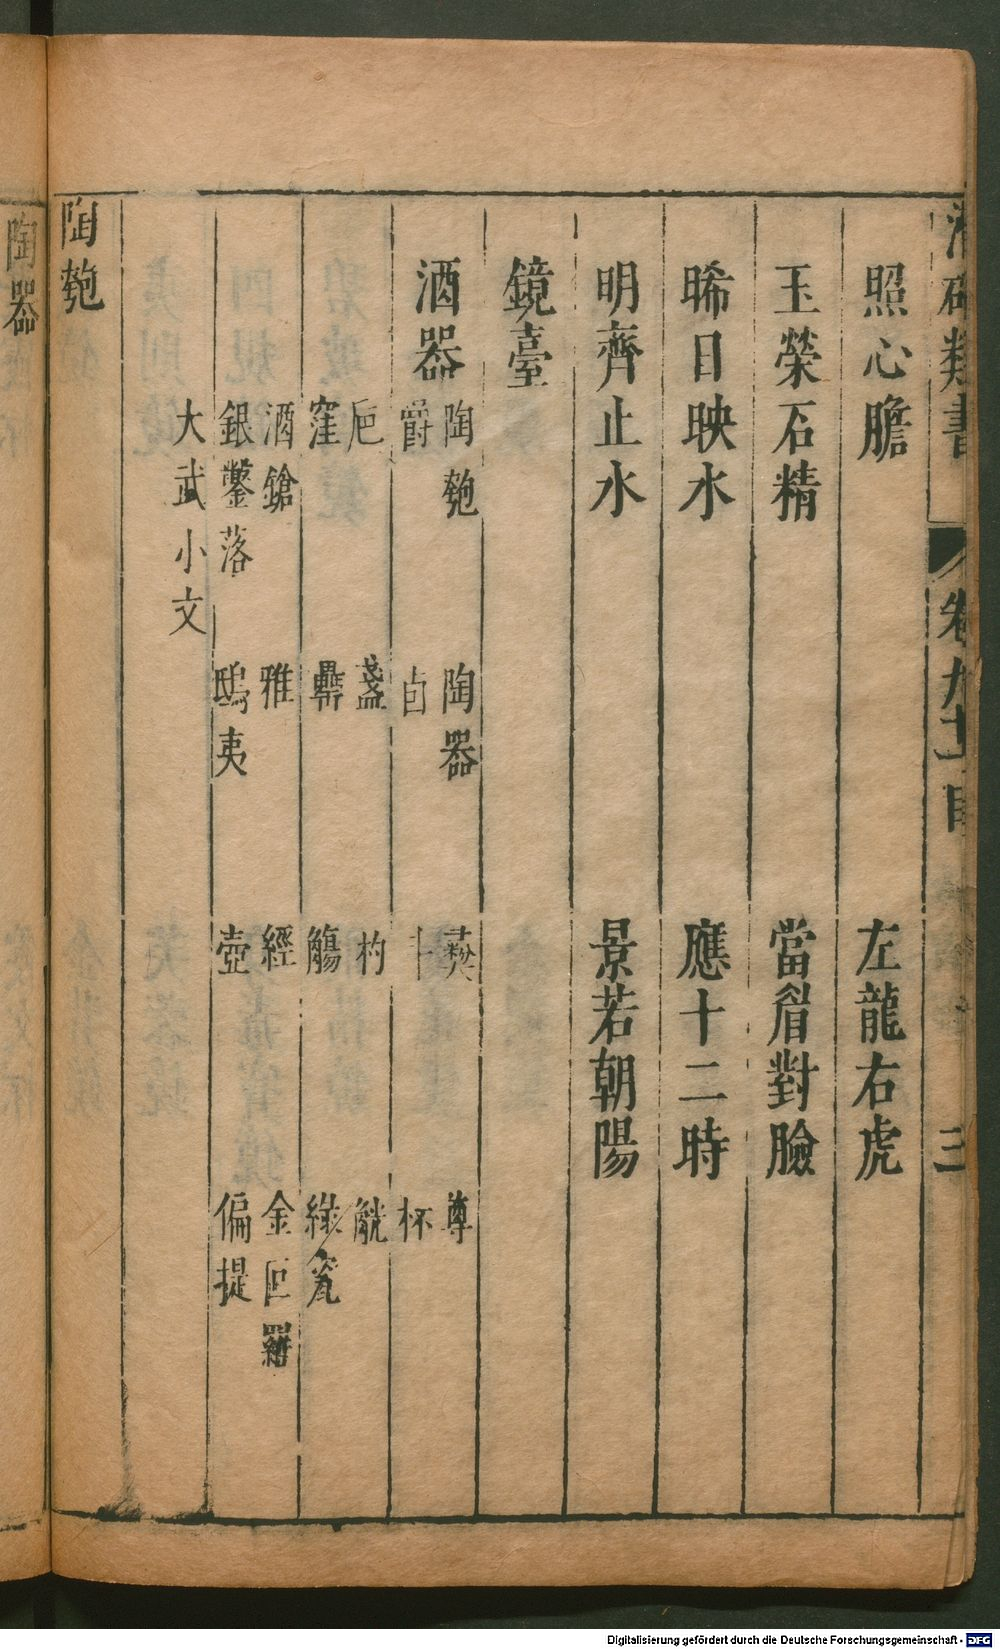 類書
卷九十
三
照心膽 左龍右虎
玉榮石精 當眉對臉
晞日映水 應十二時
明齊止水 景若朝陽
鏡臺
酒器 陶匏 陶器 尊
爵 卣 斗 杯
巵 盞 杓 觥
窪 斝 觴
酒鎗 雅 經 金叵羅
銀鑿落 鴟夷 壺 偏提
大武小文
陶匏
陶器
Digitalisierung gefördert durch die Deutsche Forschungsgemeinschaft - DFG